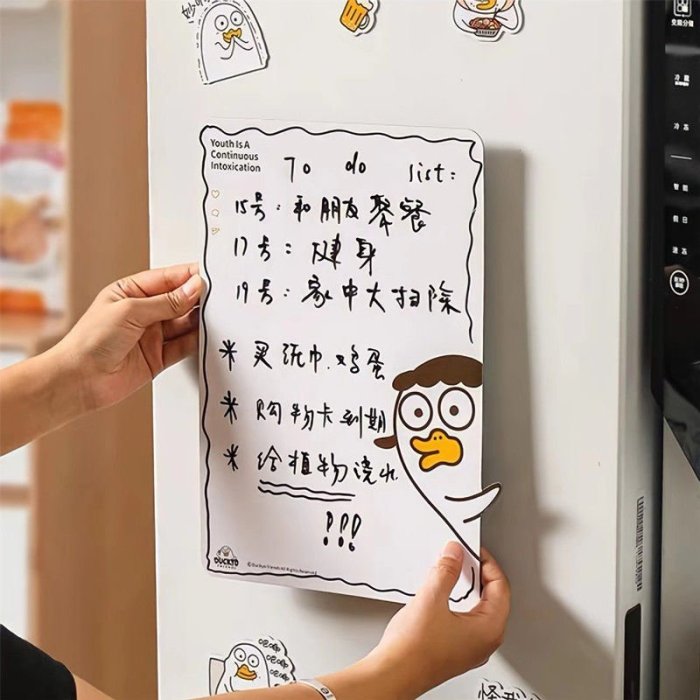 Youth Is A
Continuous
Intoxication
To do list:
15号：和朋友聚餐
17号：健身
19号：家中大扫除
* 买纸巾.鸡蛋
* 购物卡到期
* 给植物浇水
!!!
DUCKYO
FRIENDS
冷藏
冷冻
智能
假日
速冻